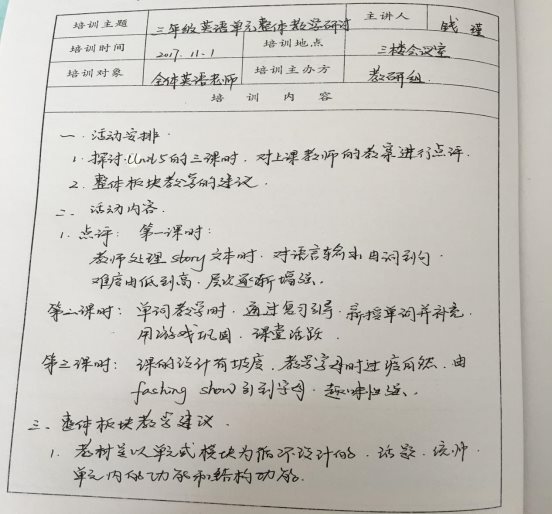 培训主题 三年级英语单元整体教学研讨 主讲人 钱瑾
培训时间 2017.11.1 培训地点 三楼会议室
培训对象 全体英语老师 培训主办方 教研组
培训内容
一. 活动安排.
1. 探讨Unit5的三课时. 对上课教师的教案进行点评.
2. 整体板块教学的建议.
二. 活动内容.
1. 点评: 第一课时:
教师处理story文本时. 对语言输出由词到句.
难度由低到高. 层次逐渐增强.
第二课时: 单词教学时. 通过复习引导. 新授单词并补充.
用游戏巩固. 课堂活跃.
第三课时: 课的设计有坡度. 教学字母时过渡自然. 由
fashing show 引到字母. 趣味性强.
三. 整体板块教学建议.
1. 教材是以单元或模块为循环设计的. 话题.
单元内的功能和结构功能.